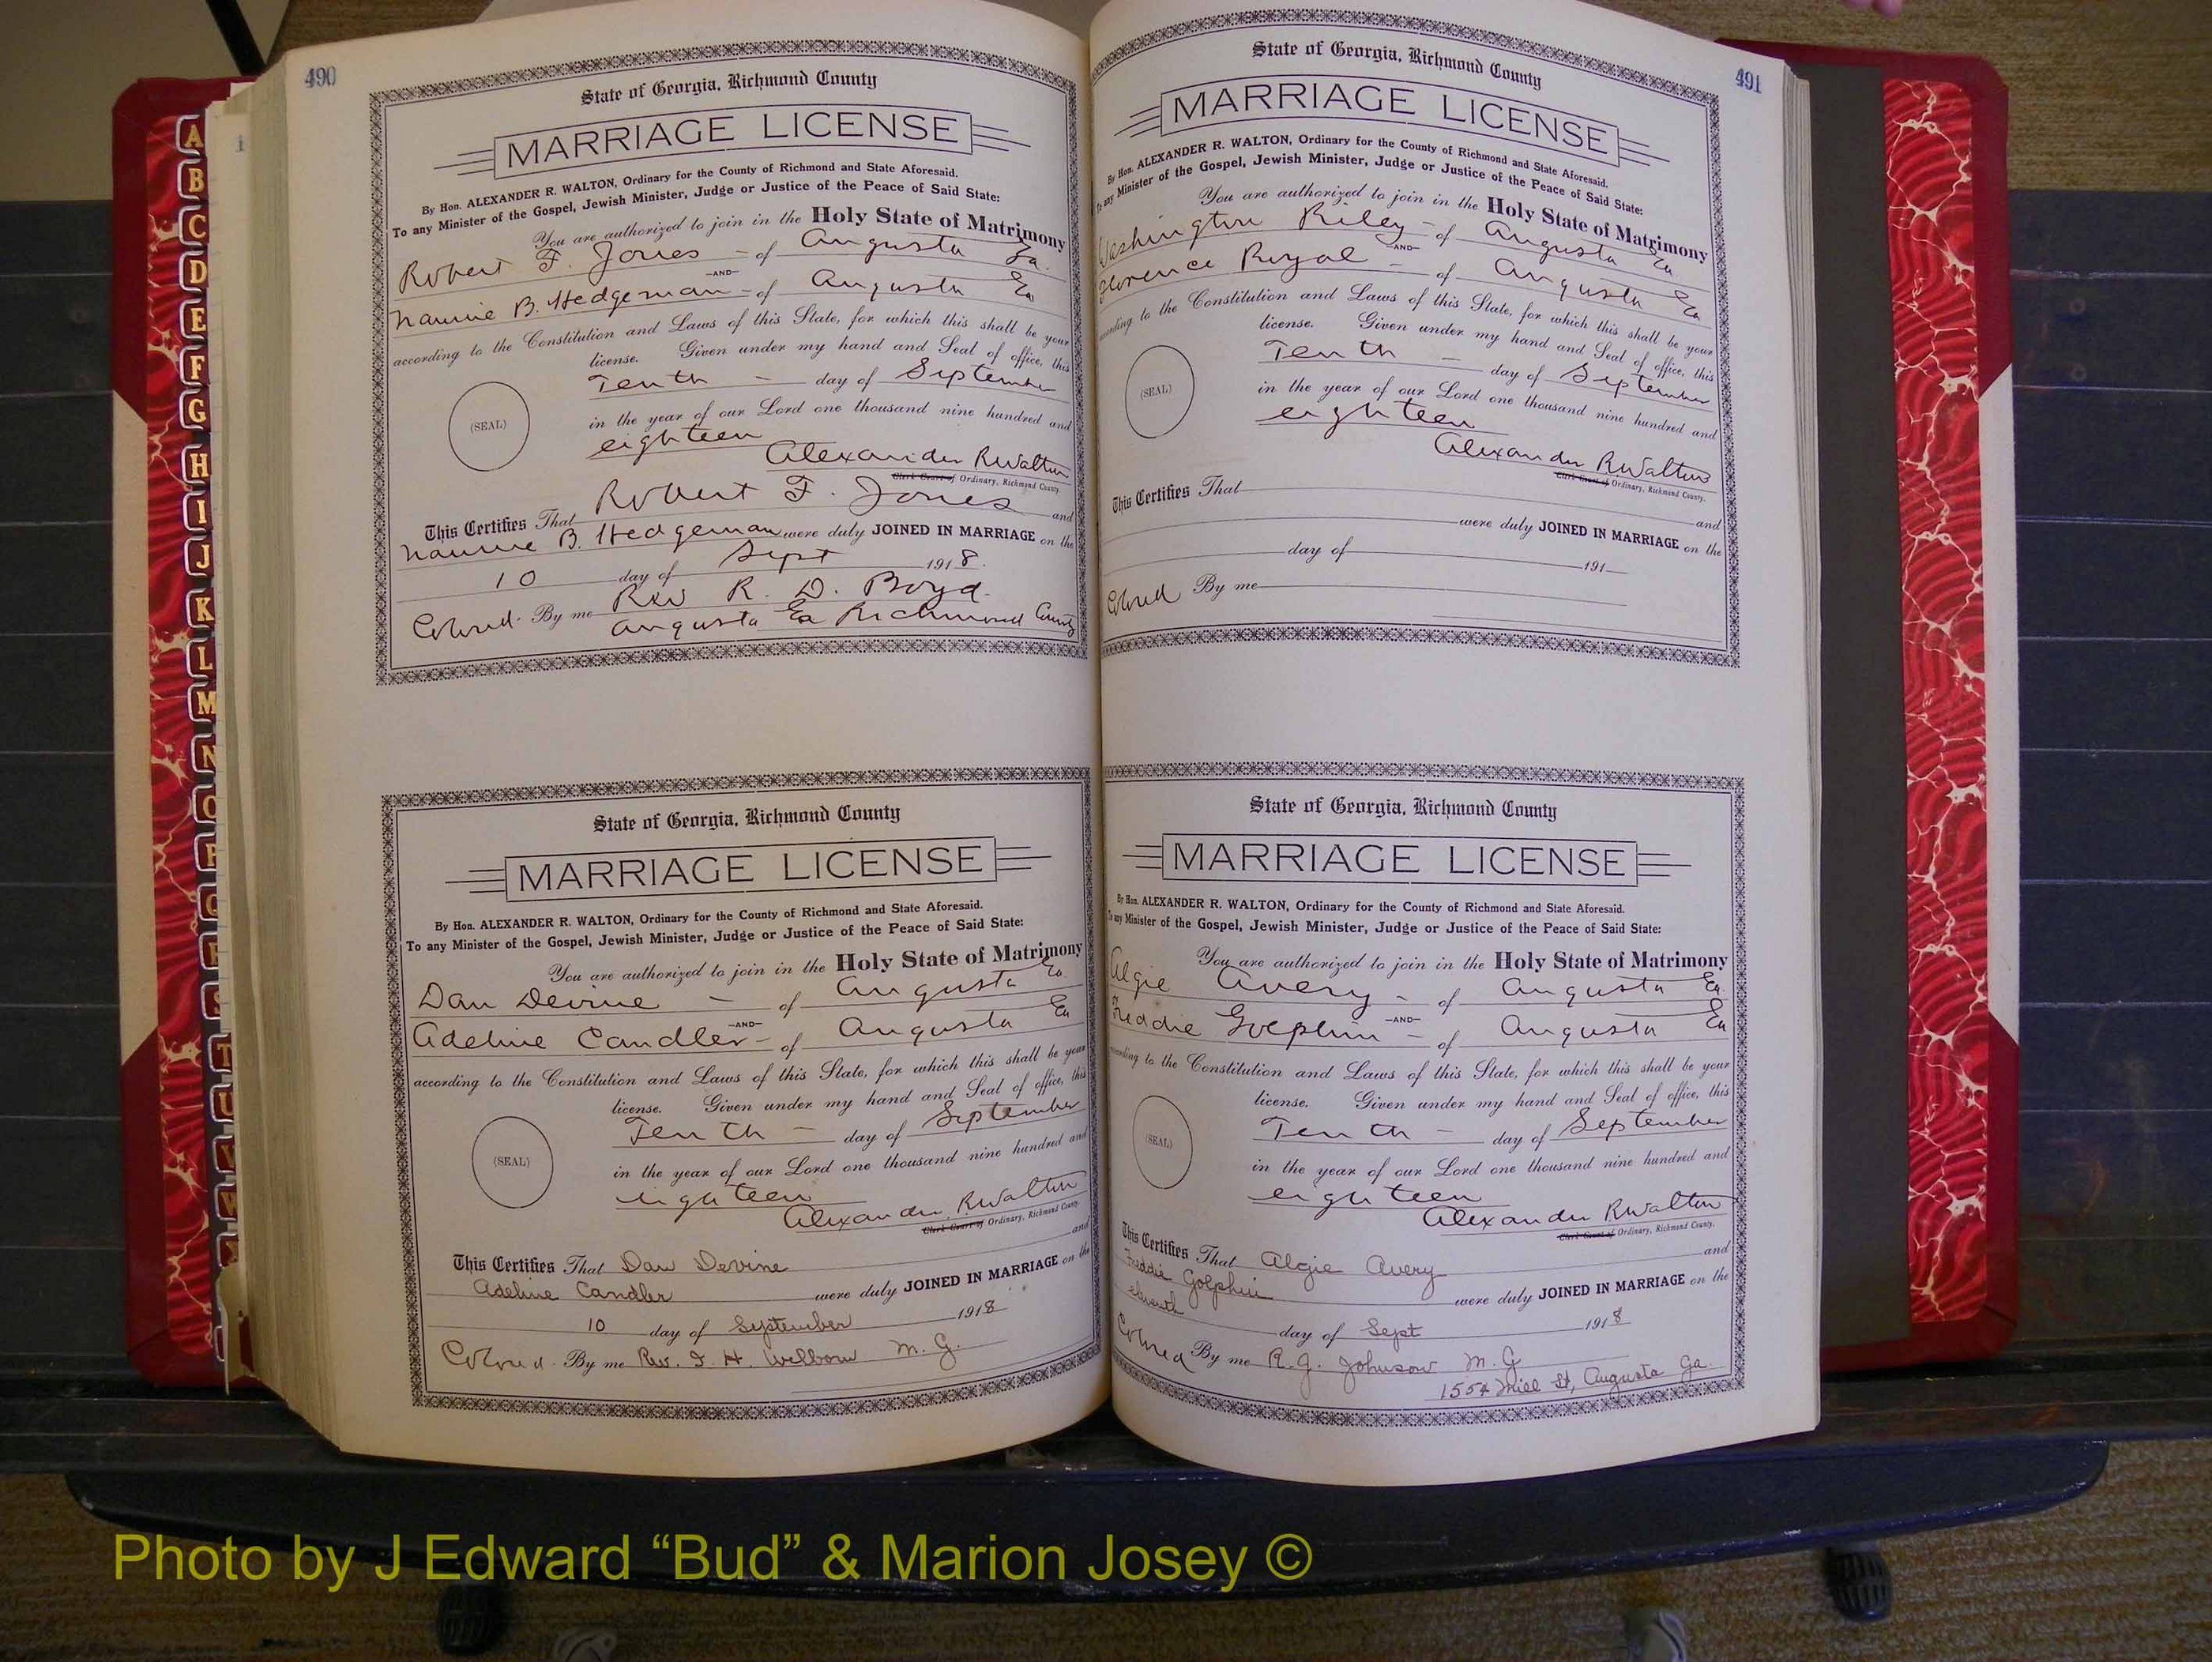 490
State of Georgia, Richmond County
MARRIAGE LICENSE
By Hon. ALEXANDER R. WALTON, Ordinary for the County of Richmond and State Aforesaid.
To any Minister of the Gospel, Jewish Minister, Judge or Justice of the Peace of Said State:
You are authorized to join in the Holy State of Matrimony
Robert F. Jones - of Augusta Ga.
-AND-
Nannie B. Hedgeman - of Augusta Ga
according to the Constitution and Laws of this State, for which this shall be your
license. Given under my hand and Seal of office, this
Tenth - day of September
(SEAL)
in the year of our Lord one thousand nine hundred and
eighteen
Alexander R Walton
Clerk Court of Ordinary, Richmond County.
This Certifies That Robert F. Jones and
Nannie B. Hedgeman were duly JOINED IN MARRIAGE on the
10 day of Sept 1918.
Colored. By me Rev R. D. Boyd.
Augusta Ga Richmond County
State of Georgia, Richmond County
MARRIAGE LICENSE
By Hon. ALEXANDER R. WALTON, Ordinary for the County of Richmond and State Aforesaid.
To any Minister of the Gospel, Jewish Minister, Judge or Justice of the Peace of Said State:
You are authorized to join in the Holy State of Matrimony
Dan Devine - of Augusta Ga
-AND-
Adeline Candler - of Augusta Ga
according to the Constitution and Laws of this State, for which this shall be your
license. Given under my hand and Seal of office, this
Tenth - day of September
(SEAL)
in the year of our Lord one thousand nine hundred and
eighteen
Alexander R Walton
Clerk Court of Ordinary, Richmond County.
This Certifies That Dan Devine and
Adeline Candler were duly JOINED IN MARRIAGE on the
10 day of September 1918
Colored. By me Rev. I. H. Welborn M. G.
491
State of Georgia, Richmond County
MARRIAGE LICENSE
By Hon. ALEXANDER R. WALTON, Ordinary for the County of Richmond and State Aforesaid.
To any Minister of the Gospel, Jewish Minister, Judge or Justice of the Peace of Said State:
You are authorized to join in the Holy State of Matrimony
Washington Riley - of Augusta Ga
-AND-
Florence Royal - of Augusta Ga
according to the Constitution and Laws of this State, for which this shall be your
license. Given under my hand and Seal of office, this
Tenth - day of September
(SEAL)
in the year of our Lord one thousand nine hundred and
eighteen
Alexander R Walton
Clerk Court of Ordinary, Richmond County.
This Certifies That and
were duly JOINED IN MARRIAGE on the
day of 191
Colored By me
State of Georgia, Richmond County
MARRIAGE LICENSE
By Hon. ALEXANDER R. WALTON, Ordinary for the County of Richmond and State Aforesaid.
To any Minister of the Gospel, Jewish Minister, Judge or Justice of the Peace of Said State:
You are authorized to join in the Holy State of Matrimony
Algie Avery - of Augusta Ga.
-AND-
Freddie Golphin - of Augusta Ga
according to the Constitution and Laws of this State, for which this shall be your
license. Given under my hand and Seal of office, this
Tenth - day of September
(SEAL)
in the year of our Lord one thousand nine hundred and
eighteen
Alexander R Walton
Clerk Court of Ordinary, Richmond County.
This Certifies That Algie Avery and
Freddie Golphin were duly JOINED IN MARRIAGE on the
eleventh day of Sept 1918
Colored By me R. G. Johnson M. G
1554 Mill St, Augusta Ga.
A
B
C
D
E
F
G
H
I
J
K
L
M
N
O
P
Q
R
S
T
U
V
W
Photo by J Edward “Bud” & Marion Josey ©